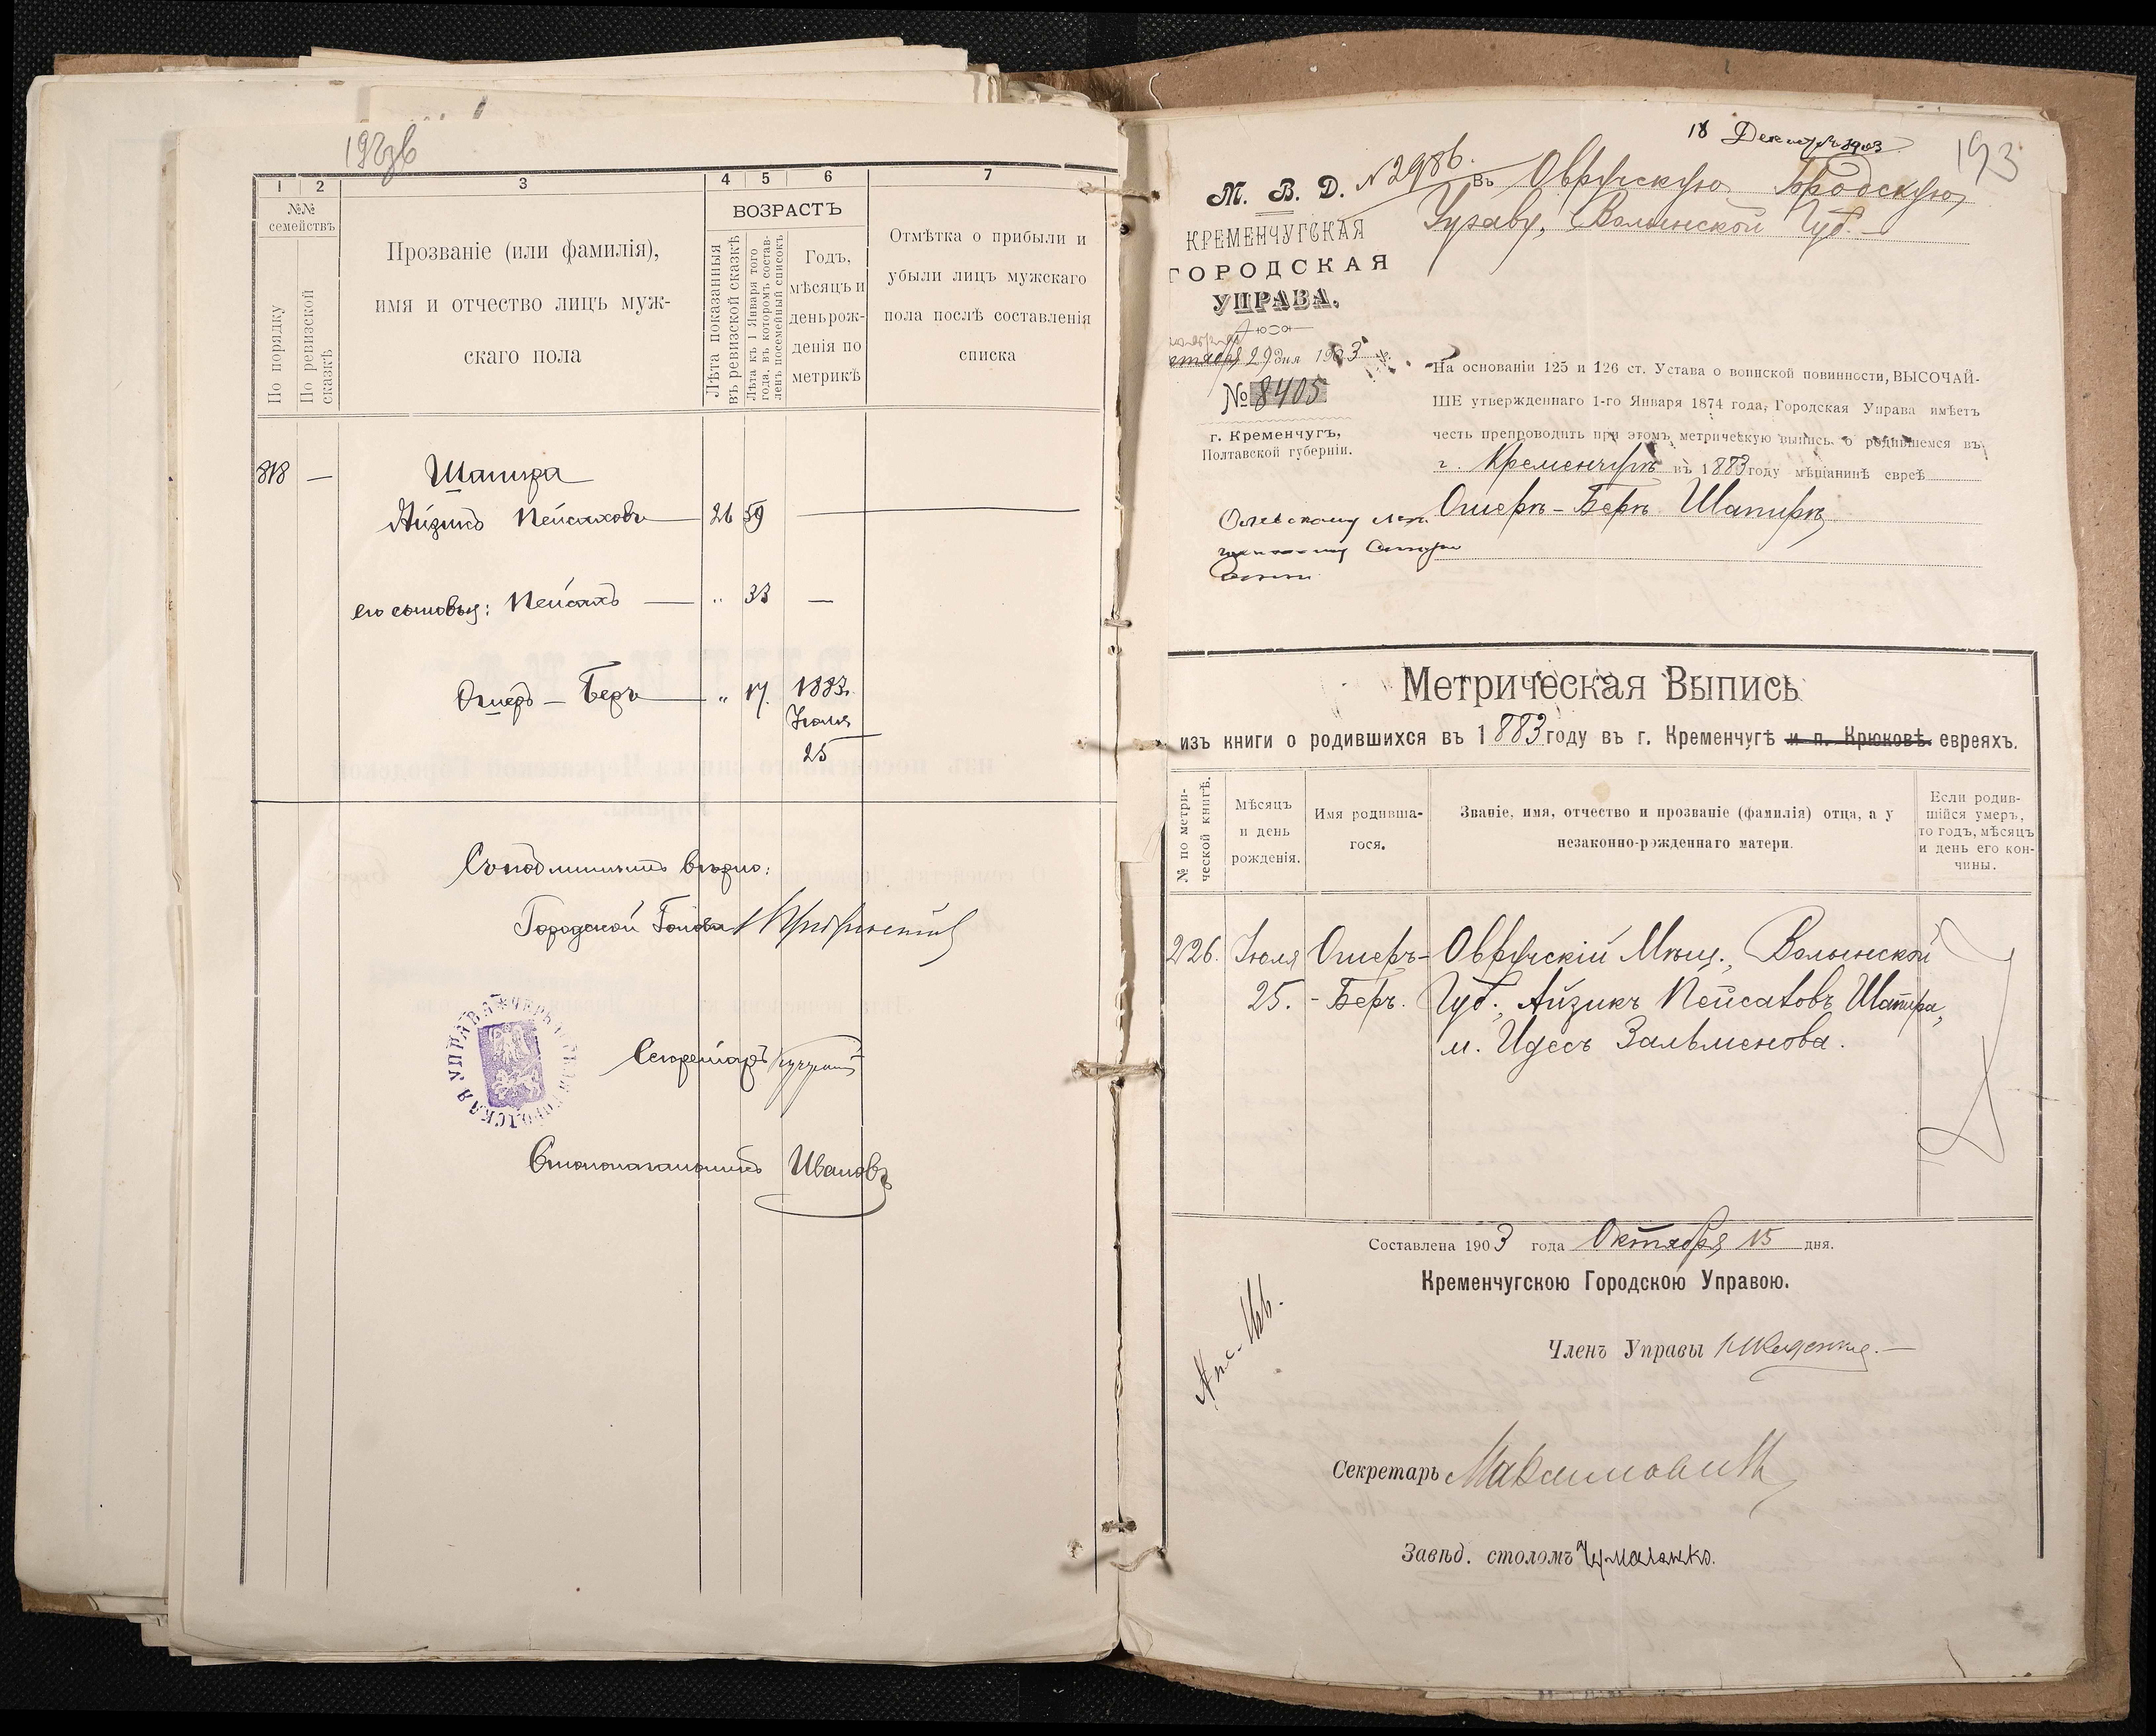 192об
1 2 3 4 5 6 7
№№ семействъ
По порядку
По ревизской сказкѣ
Прозваніе (или фамилія),
имя и отчество лицъ муж-
скаго пола
ВОЗРАСТЪ
Лѣта показанныя
въ ревизской сказкѣ
Лѣта къ 1 Января того
года, въ которомъ состав-
ленъ посемейный списокъ
Годъ,
мѣсяцъ и
день рож-
денія по
метрикѣ
Отмѣтка о прибыли и
убыли лицъ мужскаго
пола послѣ составленія
списка
818 — Шапира
Айзикъ Пейсаховъ — 26 59 —
его сыновья: Пейсахъ — „ 33 —
Ошеръ — Беръ — „ 17. 1883.
Іюля
25
Съ подлиннымъ вѣрно:
Городской Голова
Секретарь
Столоначальникъ Ивановъ
ГОРОДСКАЯ УПРАВА
18 Декабря 1903
193
М. В. Д. № 2986.
КРЕМЕНЧУГСКАЯ
ГОРОДСКАЯ
УПРАВА.
29 дня 1903
№ 8405
г. Кременчугъ,
Полтавской губерніи.
Въ Овручскую Городскую
Управу, Волынской Губ.
На основаніи 125 и 126 ст. Устава о воинской повинности, ВЫСОЧАЙ-
ШЕ утвержденнаго 1-го Января 1874 года, Городская Управа имѣетъ
честь препроводить при этомъ метрическую выпись о родившемся въ
г. Кременчугѣ въ 1883 году мѣщанинѣ евреѣ
Ошерѣ-Берѣ Шапирѣ
Метрическая Выпись
изъ книги о родившихся въ 1883 году въ г. Кременчугѣ и п. Крюковѣ евреяхъ.
№ по метри-
ческой книгѣ.
Мѣсяцъ
и день
рожденія.
Имя родивша-
гося.
Званіе, имя, отчество и прозваніе (фамилія) отца, а у
незаконно-рожденнаго матери.
Если родив-
шійся умеръ,
то годъ, мѣсяцъ
и день его кон-
чины.
226. Іюля Ошеръ- Овручскій Мѣщ., Волынской
25. -Беръ. Губ., Айзикъ Пейсаховъ Шапира,
м. Идесъ Зальменова.
Составлена 1903 года Октября 15 дня.
Кременчугскою Городскою Управою.
Членъ Управы
Секретарь Максимовичъ
Завѣд. столомъ